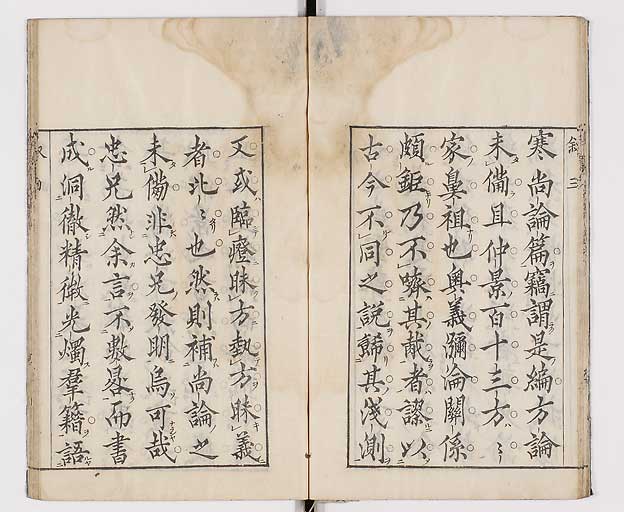 寒尚論篇竊謂是編方論
未備且仲景百十三方〻
家鼻祖也奧義彌淪關係
頗鉅乃不嚌其胾者謬以
古今不同之說歸其淺測
又或臨證昧方執方昧義
者比〻也然則補尚論之
未備非忠兄發明烏可哉
忠兄然余言不敷畧而書
成洞徹精微光燭羣籍語
叙三